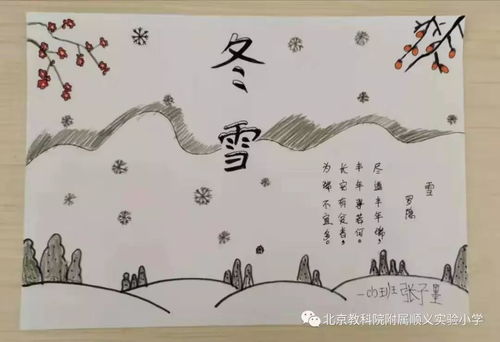 冬雪
雪
罗隐
尽道丰年瑞，
丰年事若何。
长安有贫者，
为瑞不宜多。
班 张子墨
北京教科院附属顺义实验小学